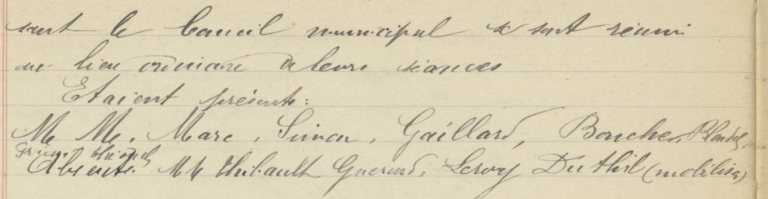 sant le Conseil municipal se sont réuni
au lieu ordinaire de leurs séances
Etaient présents:
M. M. Marc, Simon, Gaillard, Boucher,
Absents. MM Thibault Guerard, Leroy Duthil (mobilisé)